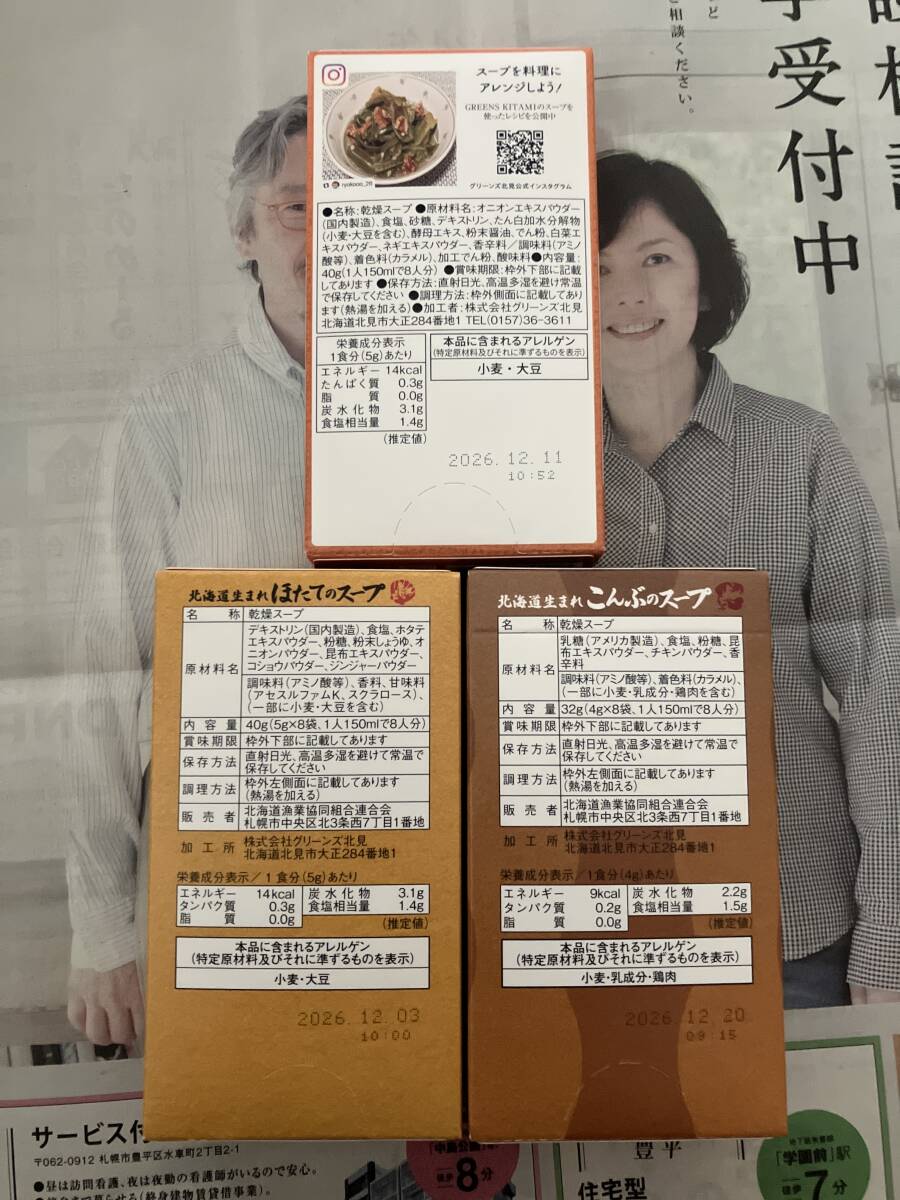 相談ください。
受付中
スープを料理に
アレンジしよう!
GREENS KITAMIのスープを
使ったレシピを公開中
ryokooo_28
グリーンズ北見公式インスタグラム
●名称:乾燥スープ ●原材料名:オニオンエキスパウダー
(国内製造)、食塩、砂糖、デキストリン、たん白加水分解物
(小麦・大豆を含む)、酵母エキス、粉末醤油、でん粉、白菜エ
キスパウダー、ネギエキスパウダー、香辛料/調味料(アミノ
酸等)、着色料(カラメル)、加工でん粉、酸味料●内容量:
40g(1人150mlで8人分) ●賞味期限:枠外下部に記載
してあります ●保存方法:直射日光、高温多湿を避け常温
で保存してください ●調理方法:枠外側面に記載してあり
ます(熱湯を加える)●加工者:株式会社グリーンズ北見
北海道北見市大正284番地1 TEL(0157)36-3611
栄養成分表示
1食分(5g)あたり
エネルギー 14kcal
たんぱく質 0.3g
脂質 0.0g
炭水化物 3.1g
食塩相当量 1.4g
(推定値)
本品に含まれるアレルゲン
(特定原材料及びそれに準ずるものを表示)
小麦・大豆
2026.12.11
10:52
北海道生まれ ほたてのスープ
名称 乾燥スープ
原材料名 デキストリン(国内製造)、食塩、ホタテ
エキスパウダー、粉糖、粉末しょうゆ、オ
ニオンパウダー、昆布エキスパウダー、
コショウパウダー、ジンジャーパウダー
調味料(アミノ酸等)、香料、甘味料
(アセスルファムK、スクラロース)、
(一部に小麦・大豆を含む)
内容量 40g(5g×8袋、1人150mlで8人分)
賞味期限 枠外下部に記載してあります
保存方法 直射日光、高温多湿を避けて常温で
保存してください
調理方法 枠外左側面に記載してあります
(熱湯を加える)
販売者 北海道漁業協同組合連合会
札幌市中央区北3条西7丁目1番地
加工所 株式会社グリーンズ北見
北海道北見市大正284番地1
栄養成分表示/1食分(5g)あたり
エネルギー 14kcal 炭水化物 3.1g
タンパク質 0.3g 食塩相当量 1.4g
脂質 0.0g (推定値)
本品に含まれるアレルゲン
(特定原材料及びそれに準ずるものを表示)
小麦・大豆
2026.12.03
10:00
北海道生まれ こんぶのスープ
名称 乾燥スープ
原材料名 乳糖(アメリカ製造)、食塩、粉糖、昆
布エキスパウダー、チキンパウダー、香
辛料
調味料(アミノ酸等)、着色料(カラメル)、
(一部に小麦・乳成分・鶏肉を含む)
内容量 32g(4g×8袋、1人150mlで8人分)
賞味期限 枠外下部に記載してあります
保存方法 直射日光、高温多湿を避けて常温で
保存してください
調理方法 枠外左側面に記載してあります
(熱湯を加える)
販売者 北海道漁業協同組合連合会
札幌市中央区北3条西7丁目1番地
加工所 株式会社グリーンズ北見
北海道北見市大正284番地1
栄養成分表示/1食分(4g)あたり
エネルギー 9kcal 炭水化物 2.2g
タンパク質 0.2g 食塩相当量 1.5g
脂質 0.0g (推定値)
本品に含まれるアレルゲン
(特定原材料及びそれに準ずるものを表示)
小麦・乳成分・鶏肉
2026.12.20
09:15
サービス付
〒062-0912 札幌市豊平区水車町2丁目2-1
●昼は訪問看護、夜は夜勤の看護師がいるので安心。
「中島公園」
徒歩8分
豊平
住宅型
地下鉄東豊線
「学園前」駅
徒歩7分